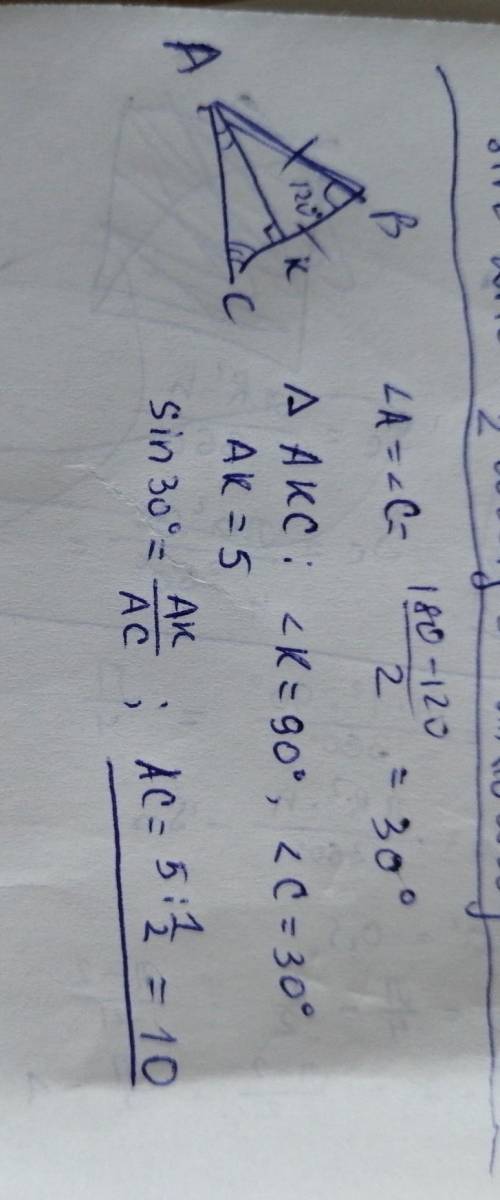 A
B
120°
K
C
∠A = ∠C = 180-120/2 = 30°
Δ AKC: ∠K = 90°, ∠C = 30°
AK = 5
sin 30° = AK/AC ; AC = 5 : 1/2 = 10